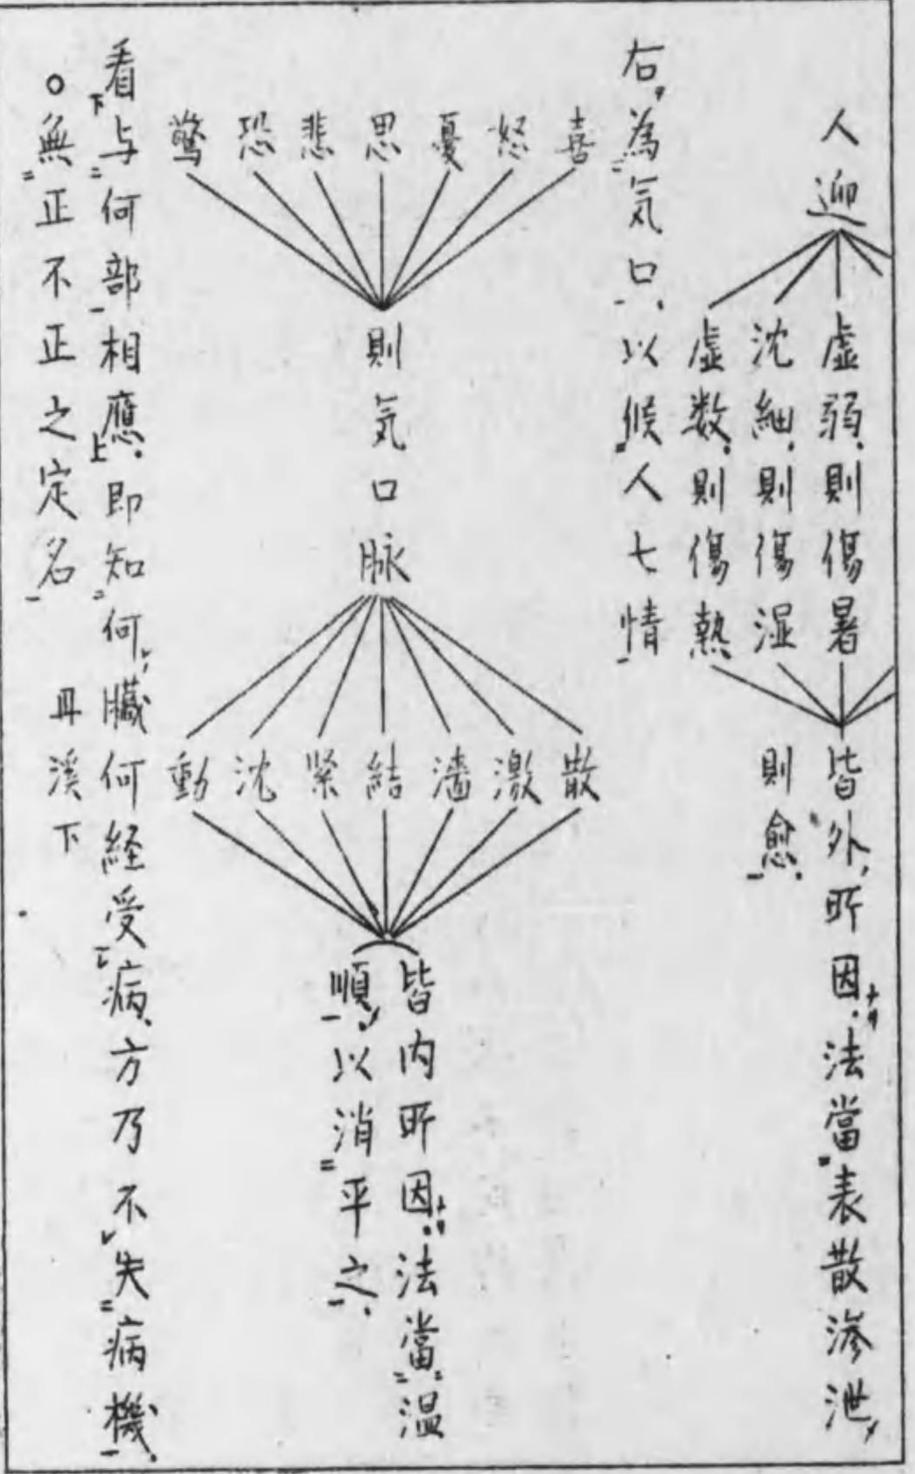 人迎
虚弱則傷暑
沈細則傷湿
虚数則傷熱
皆外所因法當表散滲泄
則愈
右為気口以候人七情
喜
怒
憂
思
悲
恐
驚
則気口脉
散
激
濇
結
緊
沈
動
皆内所因法當温
順以消平之
看与何部相應即知何臓何経受病方乃不失病機
○無正不正之定名 丹溪下